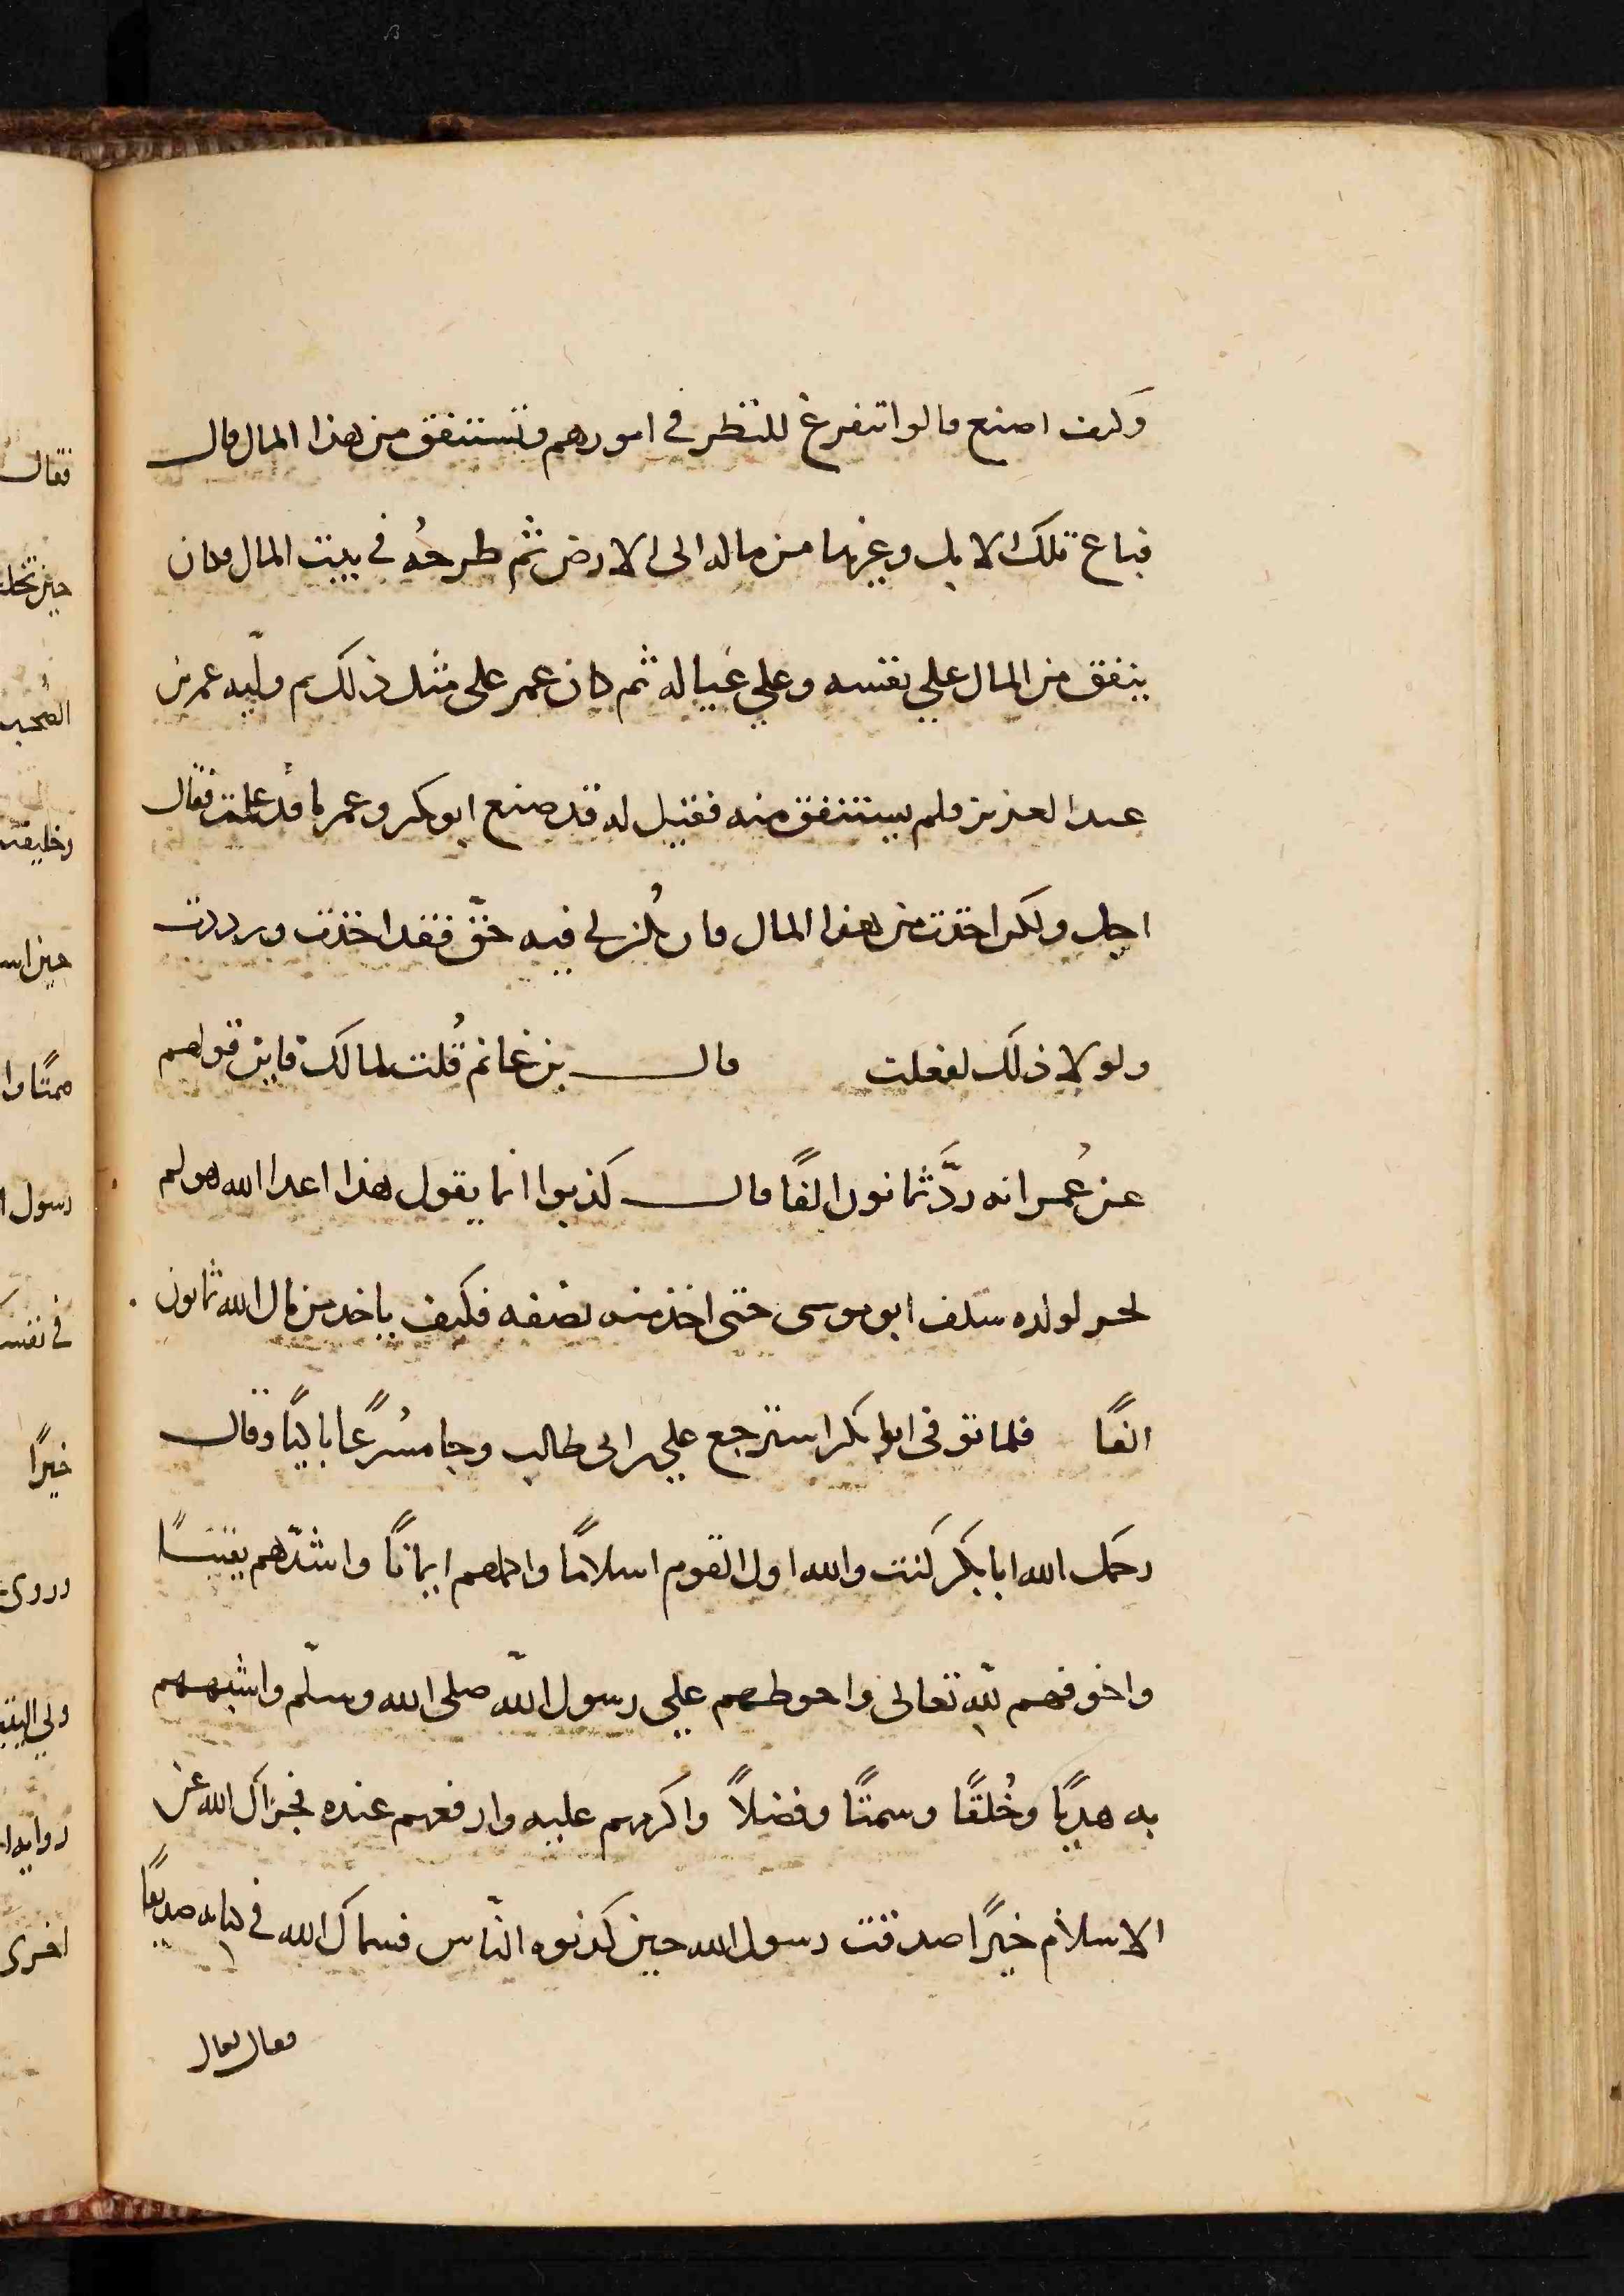 وكيف اصنع قالوا تتفرغ للنظر في امورهم وتستنفق من هذا المال قال
فباع تلك الابل وغيرها من ماله الى الارض ثم طرحُه في بيت المال وكان
ينفق من المال علي نفسه وعلي عياله ثم كان عمر على مثل ذلك ثم وليّه عمر بن
عبد العزيز فلم يستنفق منه فقيل له قد صنع ابو بكر وعمر ما قد علمت فقال
اجل ولكن اخذت من هذا المال فان يكُن لي فيه حقّ فقد اخذت ورددت
ولولا ذلك لفعلت قال بن غانم قُلت لمالك فاين قولهم
عن عُمر انه ردَّ ثمانون الفًا قال كذبوا انما يقول هذا اعدا الله هو لم
لولده سلف ابو موسى حتى اخذ منه نصفه فكيف ياخد من مال الله ثمانون
الفًا فلما توفى ابو بكر استرجع علي بن ابى طالب وجا مسُرعًا باكيًا وقال
رحمك الله ابا بكر كنت والله اول القوم اسلامًا واكملهم ايمانًا واشدّهم يقينـًا
واخوفهم لله تعالى واحوطهم علي رسول اللّه صلى الله وسلّم واشبههم
به هديًا وخُلقًا وسمتًا وفضلاً واكرمهم عليه وارفعهم عنده فجزاك الله عن
الاسلام خيرًا صدقت رسول الله حين كذبوه النّاس فسماك الله في كتابه صديقًا
فقال تعال
فقال
رسول
خيرًا